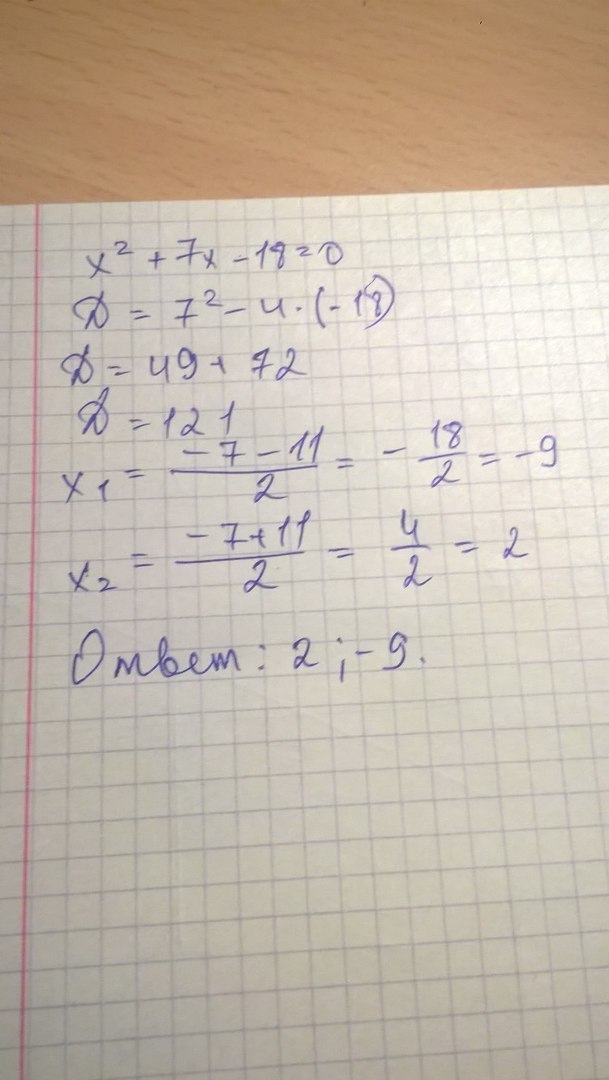 x² + 7x - 18 = 0
D = 7² - 4 · (-18)
D = 49 + 72
D = 121
x₁ = (-7 - 11)/2 = - 18/2 = -9
x₂ = (-7 + 11)/2 = 4/2 = 2
Ответ: 2 ; -9.